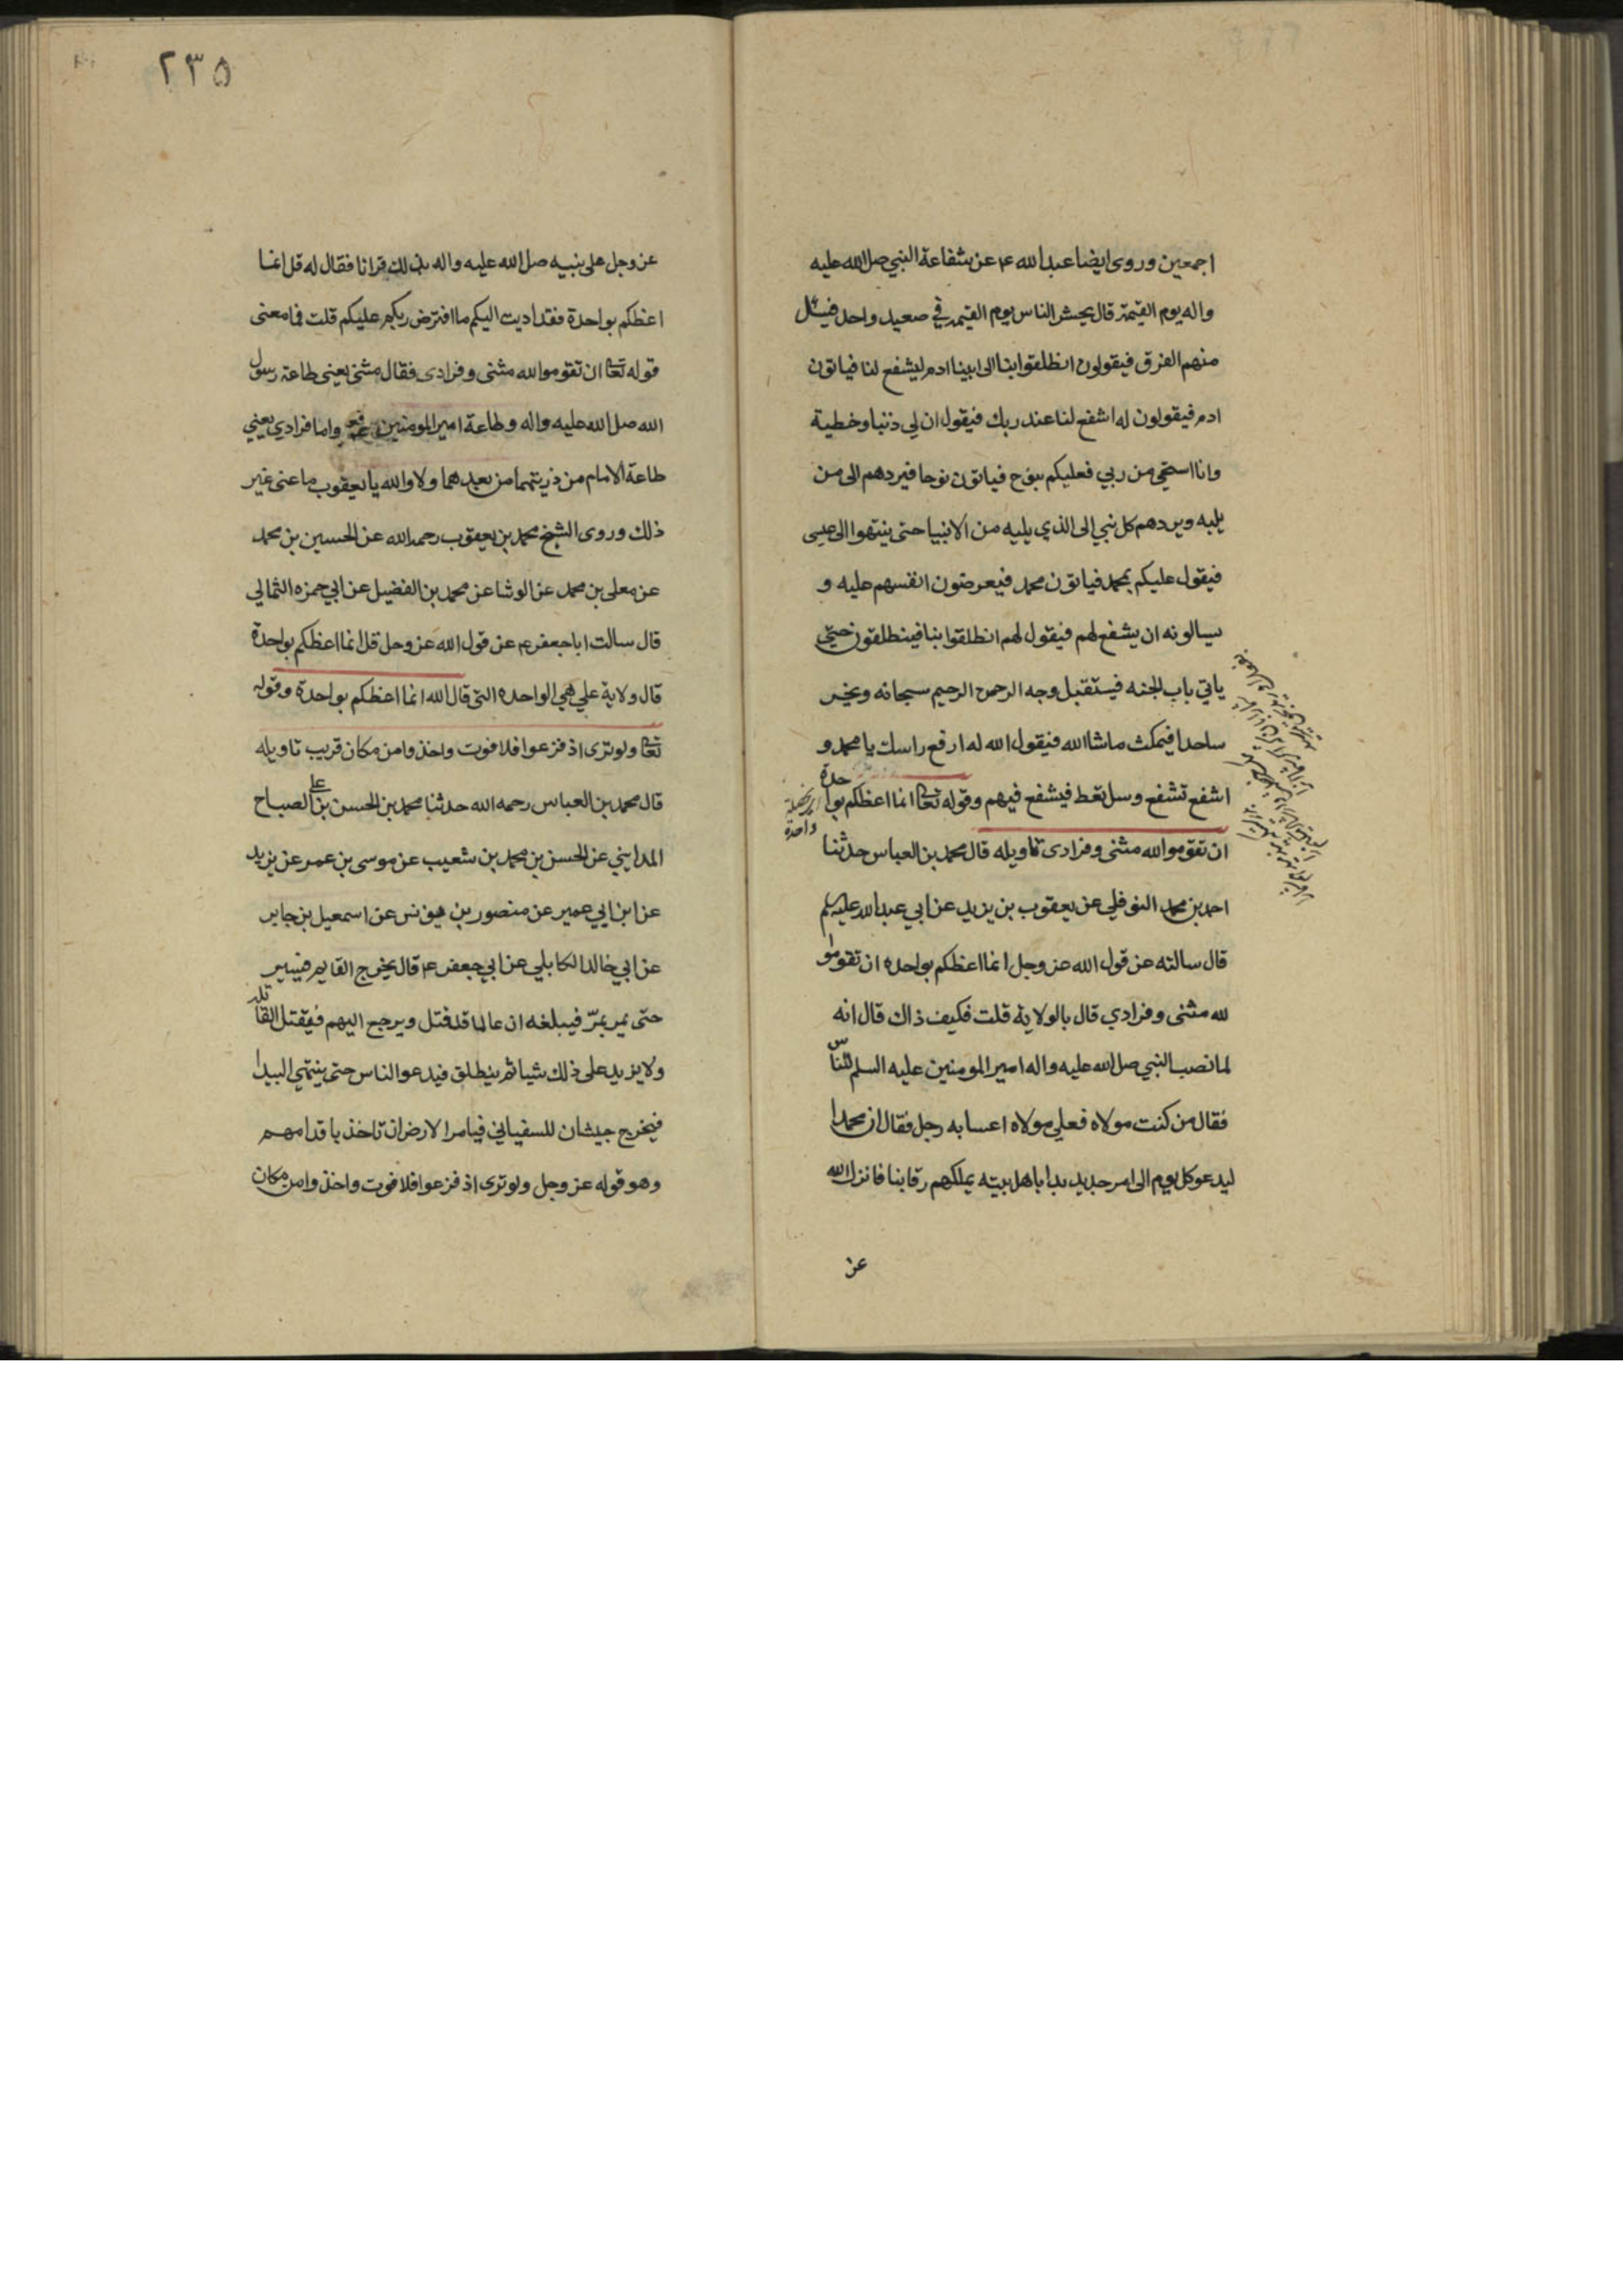 اجمعين وروى ايضا عبدالله ع عن شفاعة النبي صل الله عليه
واله يوم القيمة قال يحشر الناس يوم القيمة في صعيد واحد فيسئل
منهم الفرق فيقولون انطلقوا بنا الى ابينا ادم ليشفع لنا فياتون
ادم فيقولون له اشفع لنا عند ربك فيقول ان لي ذنبا وخطية
وانا استحي من ربي فعليكم بنوح فياتون نوحا فيردهم الى من
يليه ويردهم كل نبي الى الذي يليه من الانبيا حتى ينتهوا الى عيسى
فيقول عليكم بمحمد فياتون محمد فيعرضون انفسهم عليه و
يسالونه ان يشفع لهم فيقول لهم انطلقوا بنا فينطلقون حتى
ياتي باب الجنه فيستقبل وجه الرحمن الرحيم سبحانه ويخر
ساجدا فيمكث ماشاالله فيقول الله له ارفع راسك يا محمد و
اشفع تشفع وسل تعط فيشفع فيهم وقوله تعا انما اعظكم بواحدة
واحدة
ان تقوموالله مثنى وفرادى تاويله قال محمد بن العباس حدثنا
احمد بن محمد النوفلي عن يعقوب بن يزيد عن ابي عبدالله عليه
قال سالته عن قول الله عز وجل انما اعظكم بواحده ان تقوموا
لله مثنى وفرادي قال بالولاية قلت فكيف ذاك قال انه
لما نصب النبي صل الله عليه واله امير المومنين عليه السلم للناس
فقال من كنت مولاه فعلي مولاه اعسابه رجل فقال ان محمدا
ليدعو كل يوم الى امر جديد بدا باهل بيته يملكهم رقابنا فانزل الله
عز
٢٣٥
عز وجل على نبيه صل الله عليه واله بذلك قرانا فقال له قل انما
اعظكم بواحدة فقد اديت اليكم ما افترض ربكم عليكم قلت فما معنى
قوله تعا ان تقوموالله مثنى وفرادى فقال مثنى يعنى طاعة رسول
الله صل الله عليه واله وطاعة امير المومنين واما فرادي يعني
طاعة الامام من ذريتهما من بعدهما ولا والله يا يعقوب ما عنى غير
ذلك وروى الشيخ محمد بن يعقوب رحمه الله عن الحسين بن محمد
عن معلى بن محمد عن الوشا عن محمد بن الفضيل عن ابي حمزه الثمالي
قال سالت ابا جعفر ع عن قول الله عز وجل قل انما اعظكم بواحدة
قال ولاية علي هي الواحده التي قال الله انما اعظكم بواحدة وقوله
تعا ولو ترى اذ فزعوا فلا فوت واخذوا من مكان قريب تاويله
قال محمد بن العباس رحمه الله حدثنا محمد بن الحسن بن علي الصباح
المدايني عن الحسن بن محمد بن شعيب عن موسى بن عمر عن يزيد
عن ابن ابي عمير عن منصور بن يونس عن اسمعيل بن جابر
عن ابي خالد الكابلي عن ابي جعفر ع قال يخرج القايم فيسير
حتى يمر بمرّ فيبلغه ان عاملا قد قتل ويرجع اليهم فيقتل القاتله
ولا يزيد على ذلك شيا ثم ينطلق فيدعو الناس حتى ينتهي البيدا
فيخرج جيشان للسفياني فيامر الارض ان تاخذ باقدامهم
وهو قوله عز وجل ولو ترى اذ فزعوا فلا فوت واخذوا من مكان